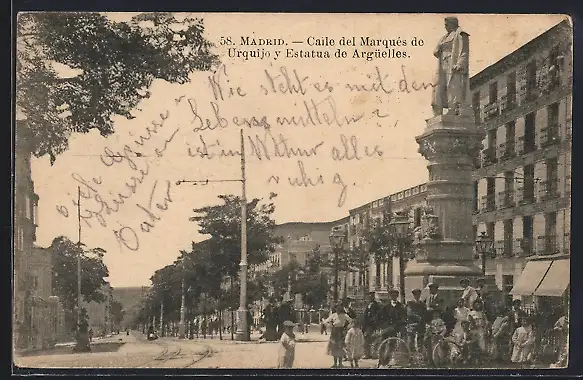 58. MADRID. — Calle del Marqués de
Urquijo y Estatua de Argüelles.
Wie steht es mit den
Lebensmitteln?
ist in Winthur alles
ruhig
Grüsse
an
Vater